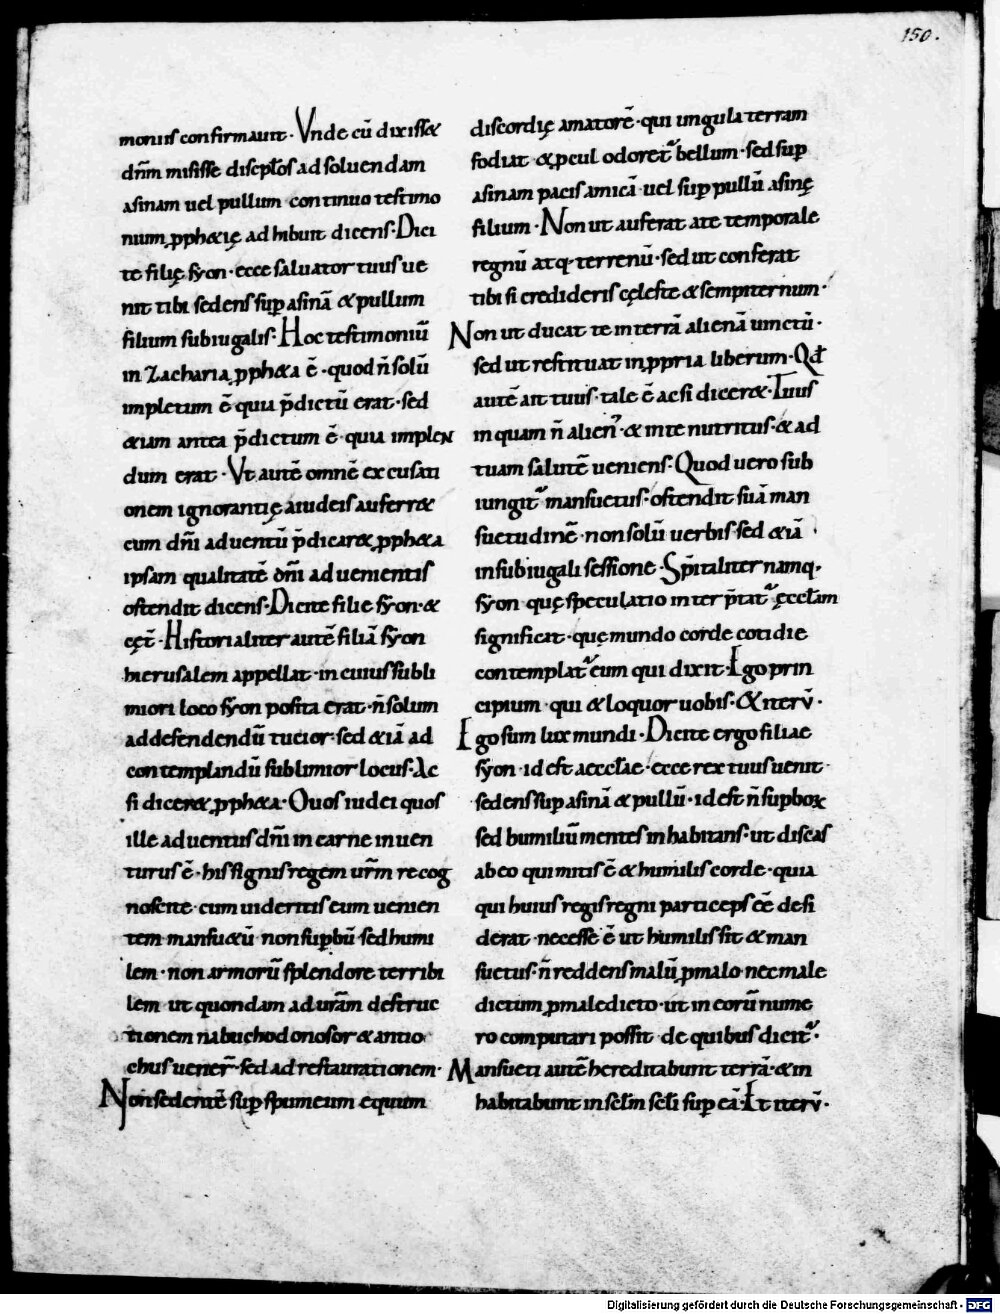 150.
moniis confirmauit · Vnde cū dixiss&
dn̄m misisse discipl̄os ad soluendam
asinam uel pullum continuo testimo
nium ꝓph&ię adhibuit dicens · Dici
te filię syon · ecce saluator tuus ue
nit tibi sedens sup̱ asinā & pullum
filium subiugalis · Hoc testimoniū
in Zacharia ꝓph&a ē · quod n̄ solū
impletum ē quia p̄dictū erat · sed
&iam antea p̄dictum ē quia implen
dum erat · Vt autē omnē excusati
onem ignorantię a iudeis auferr&
cum dn̄i aduentū p̄dicar& ꝓph&a
ipsam qualitatē dn̄i aduenientis
ostendit dicens · Dicite filie syon · &
cęt̄ · Historialiter autē filiā syon
hierusalem appellat · in cuius subli
miori loco syon posita erat · n̄ solum
ad defendendū tucior · sed &iā ad
contemplandū sublimior locus · Ac
si dicer& ꝓph&a · Quos iudei quos
ille aduentus dn̄i in carne inuen
turus ē · his signis regem ur̄m recog
noscite · cum uideritis eum uenien
tem mansu&ū non sup̱bū sed humi
lem · non armorū splendore terribi
lem ut quondam ad ur̄am destruc
tionem nabuchodonosor & antio
chus uener̄ · sed ad restaurationem ·
Non sedentē sup̱ spumeum equum
discordię amatorē · qui ungula terram
fodiat & ꝓcul odoret᷑ bellum · sed sup̱
asinam pacis amicā uel sup̱ pullū asinę
filium · Non ut auferat a te temporale
regnū atq· terrenū · sed ut conferat
tibi si credideris cęleste & sempiternum ·
Non ut ducat te in terrā alienā uinctū ·
sed ut restituat in ꝓpria liberum · Qđ
autē ait tuus · tale ē ac si dicer& · Tuus
inquam n̄ alien᾽ · & in te nutritus · & ad
tuam salutē ueniens · Quod uero sub
iungit᷑ mansuetus · ostendit suā man
suetudinē · non solū uerbis · sed &iā
in subiugali sessione · Sp̄italiter namq·
syon quę speculatio interp̄tat᷑ ęccl̄am
significat · quę mundo corde cotidie
contemplat᷑ eum qui dixit · Ego prin
cipium · qui & loquor uobis · & iterū ·
Ego sum lux mundi · Dicite ergo filiae
syon · id est aeccl̄ae · ecce rex tuus uenit ·
sedens sup̱ asinā & pullū · id est n̄ sup̱boꝝ
sed humiliū mentes inhabitans · ut discas
ab eo qui mitis ē & humilis corde · quia
qui huius regis regni particeps ēē desi
derat · necesse ē ut humilis sit & man
suetus · n̄ reddens malū ꝓ malo nec male
dictum ꝓ maledicto · ut in eorū nume
ro computari possit · de quibus dicit᷑ ·
Mansueti autē hereditabunt terrā · & in
habitabunt in scl̄m scl̄i sup̱ eā · Et iterū ·
Digitalisierung gefördert durch die Deutsche Forschungsgemeinschaft - DFG